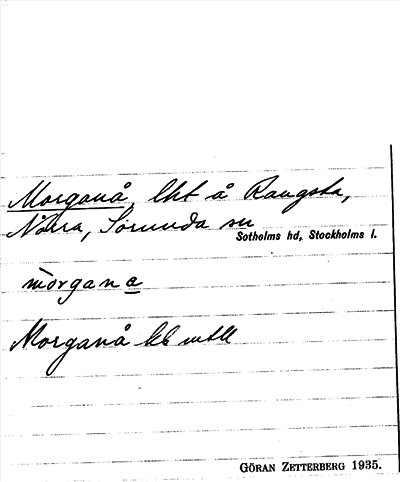 Morganå, lht å Rangsta,
Norra, Sorunda sn
Sotholms hd, Stockholms l.
mòrgana
Morganå lb
GÖRAN ZETTERBERG 1935.